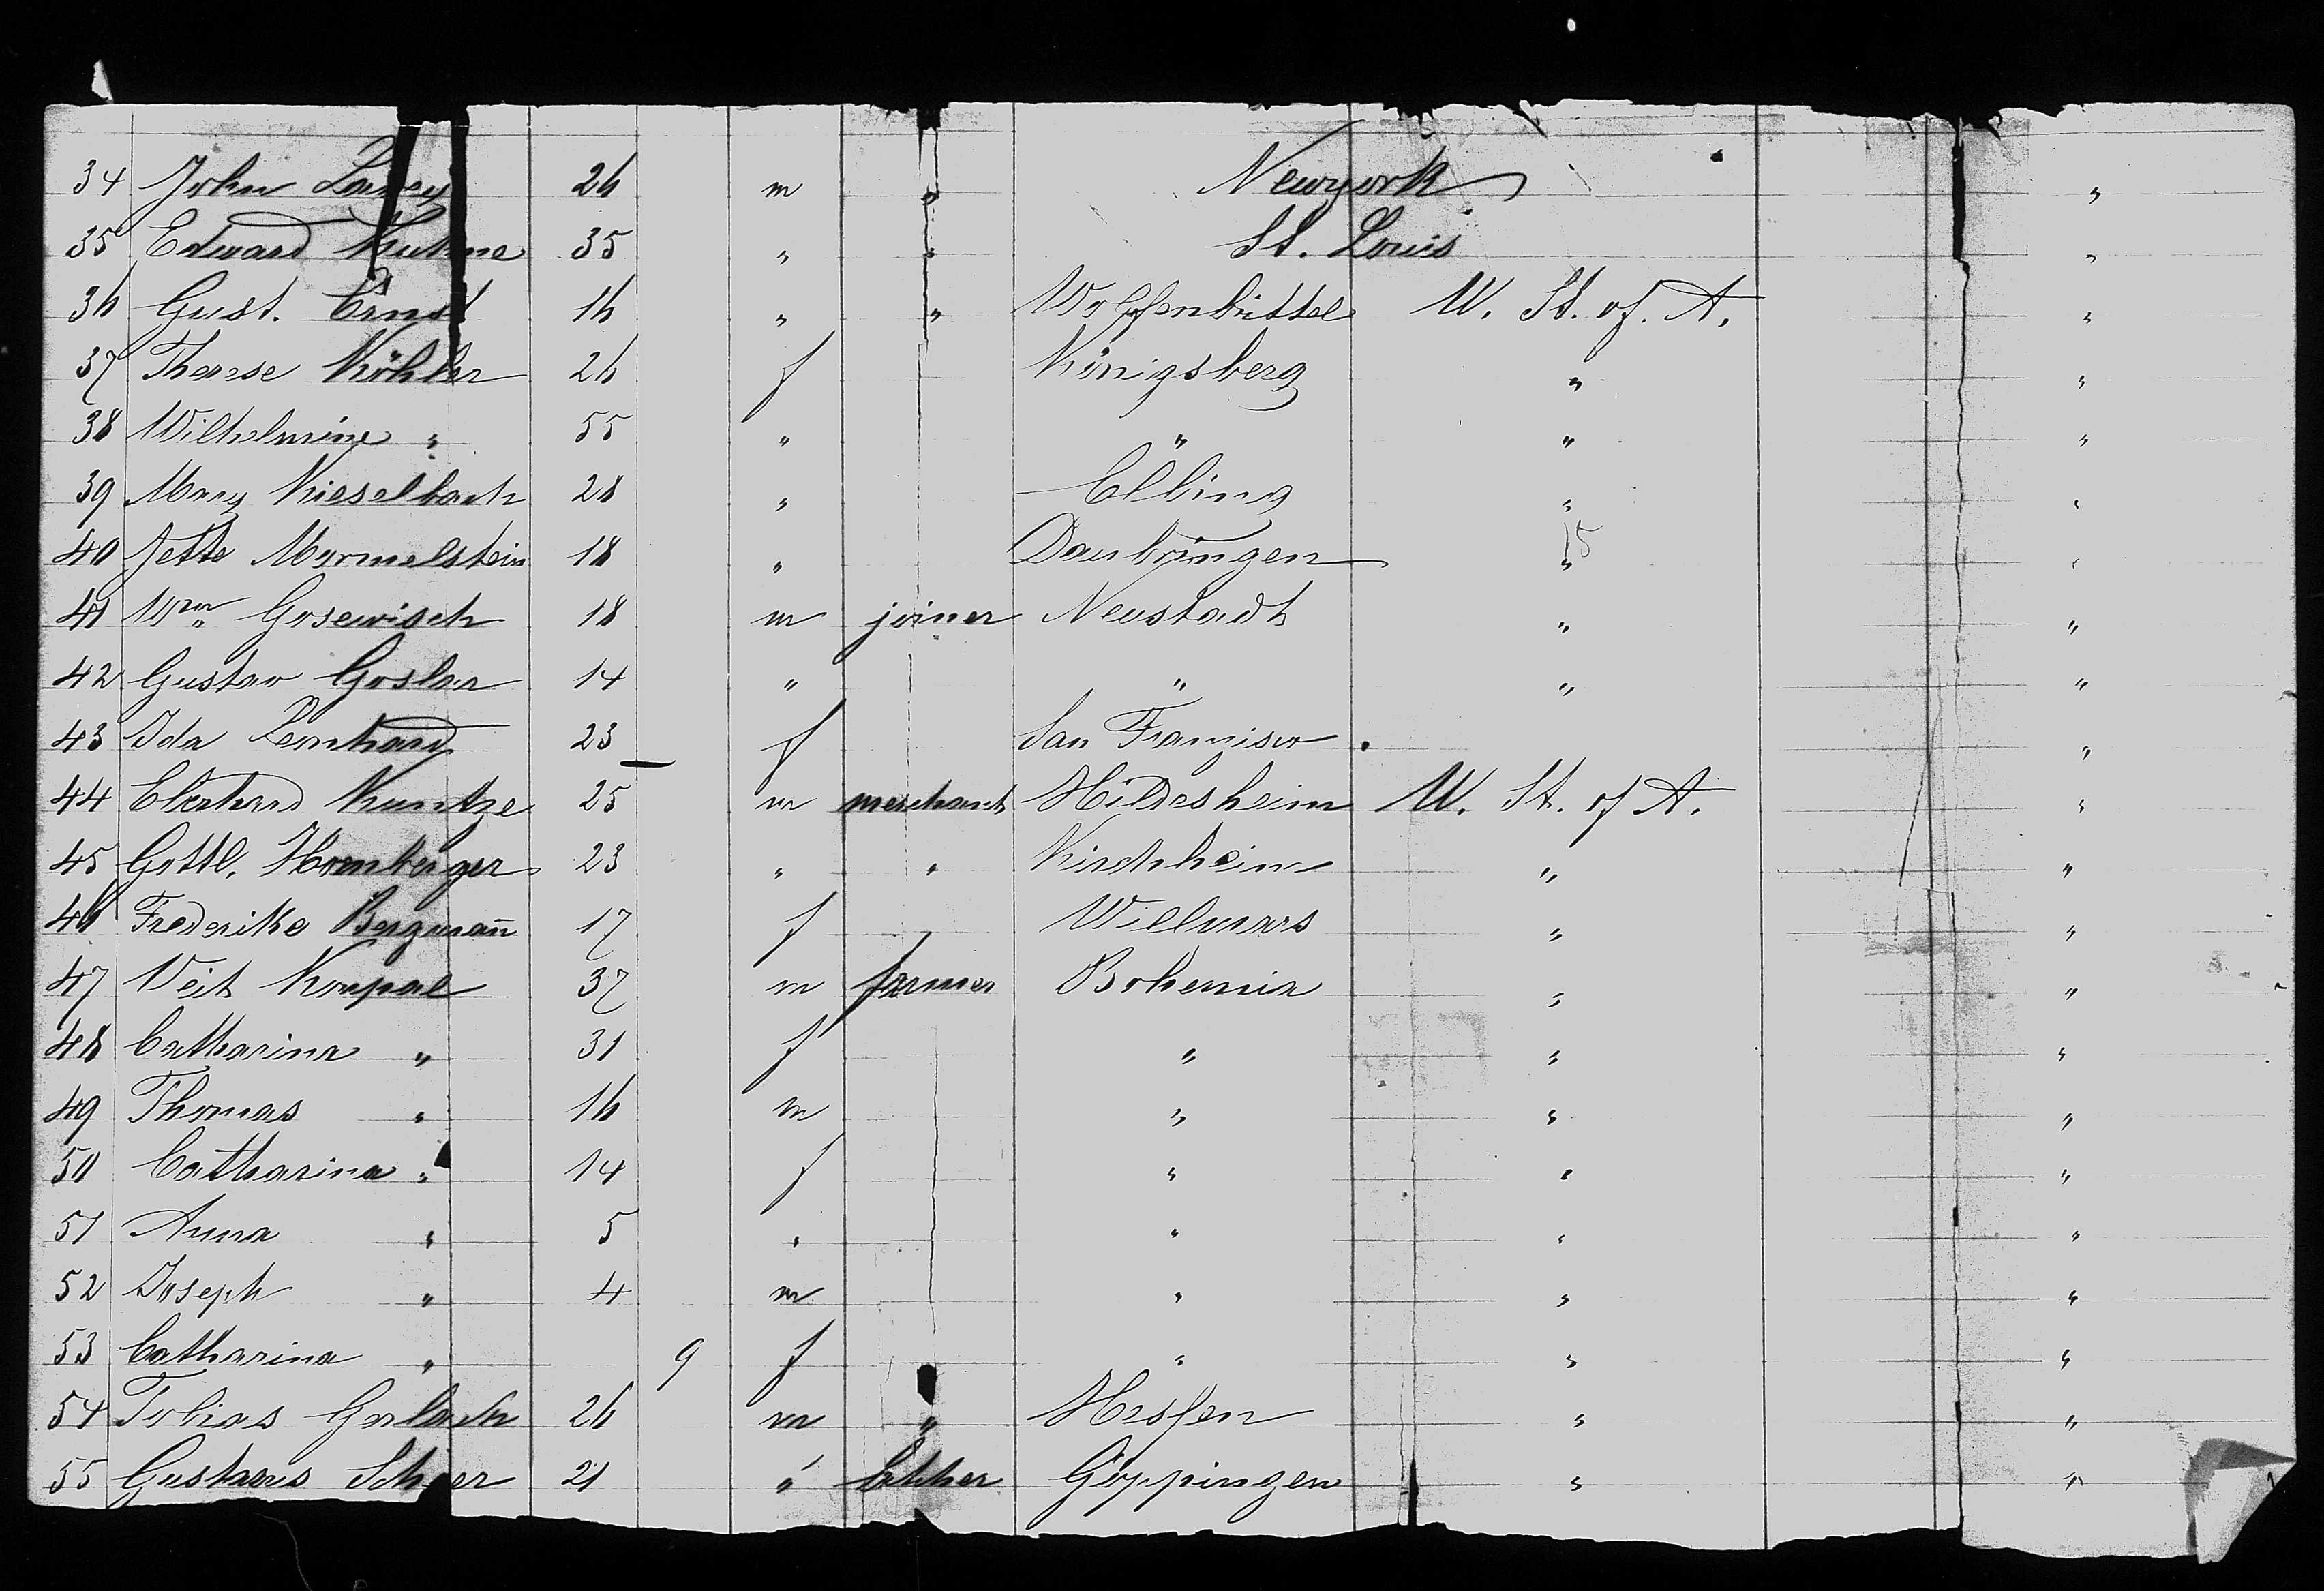 34 John 26 m " Newyork "
35 Edward Kuhne 35 " " St. Louis "
36 Gust. Ernst 16 " " Wolfenbüttel U. St. of. A. "
37 Therese Köhler 26 f Königsberg " "
38 Wilhelmine " 55 " " " "
39 Mary Kieselbach 28 " Elbing " "
40 Jette Marmelstein 18 " Daubringen " "
41 Wm Gosewisch 18 m joiner Neustadt " "
42 Gustav Goslar 14 " " " "
43 Ida Leonhard 23 f San Franzisco "
44 Eberhard Kuntze 25 m merchant Hildesheim U. St. of A. "
45 Gottl. Hornberger 23 " " Kirchheim " "
46 Frederike Bergmañ 17 f Willmars " "
47 Veit Koupal 37 m farmer Bohemia " "
48 Catharina " 31 f " " "
49 Thomas " 16 m " " "
50 Catharina " 14 f " " "
51 Anna " 5 " " " "
52 Joseph " 4 m " " "
53 Catharina " 9 f " " "
54 Tobias Gerlach 26 m " Hessen " "
55 Gustavus 21 " Göppingen " "